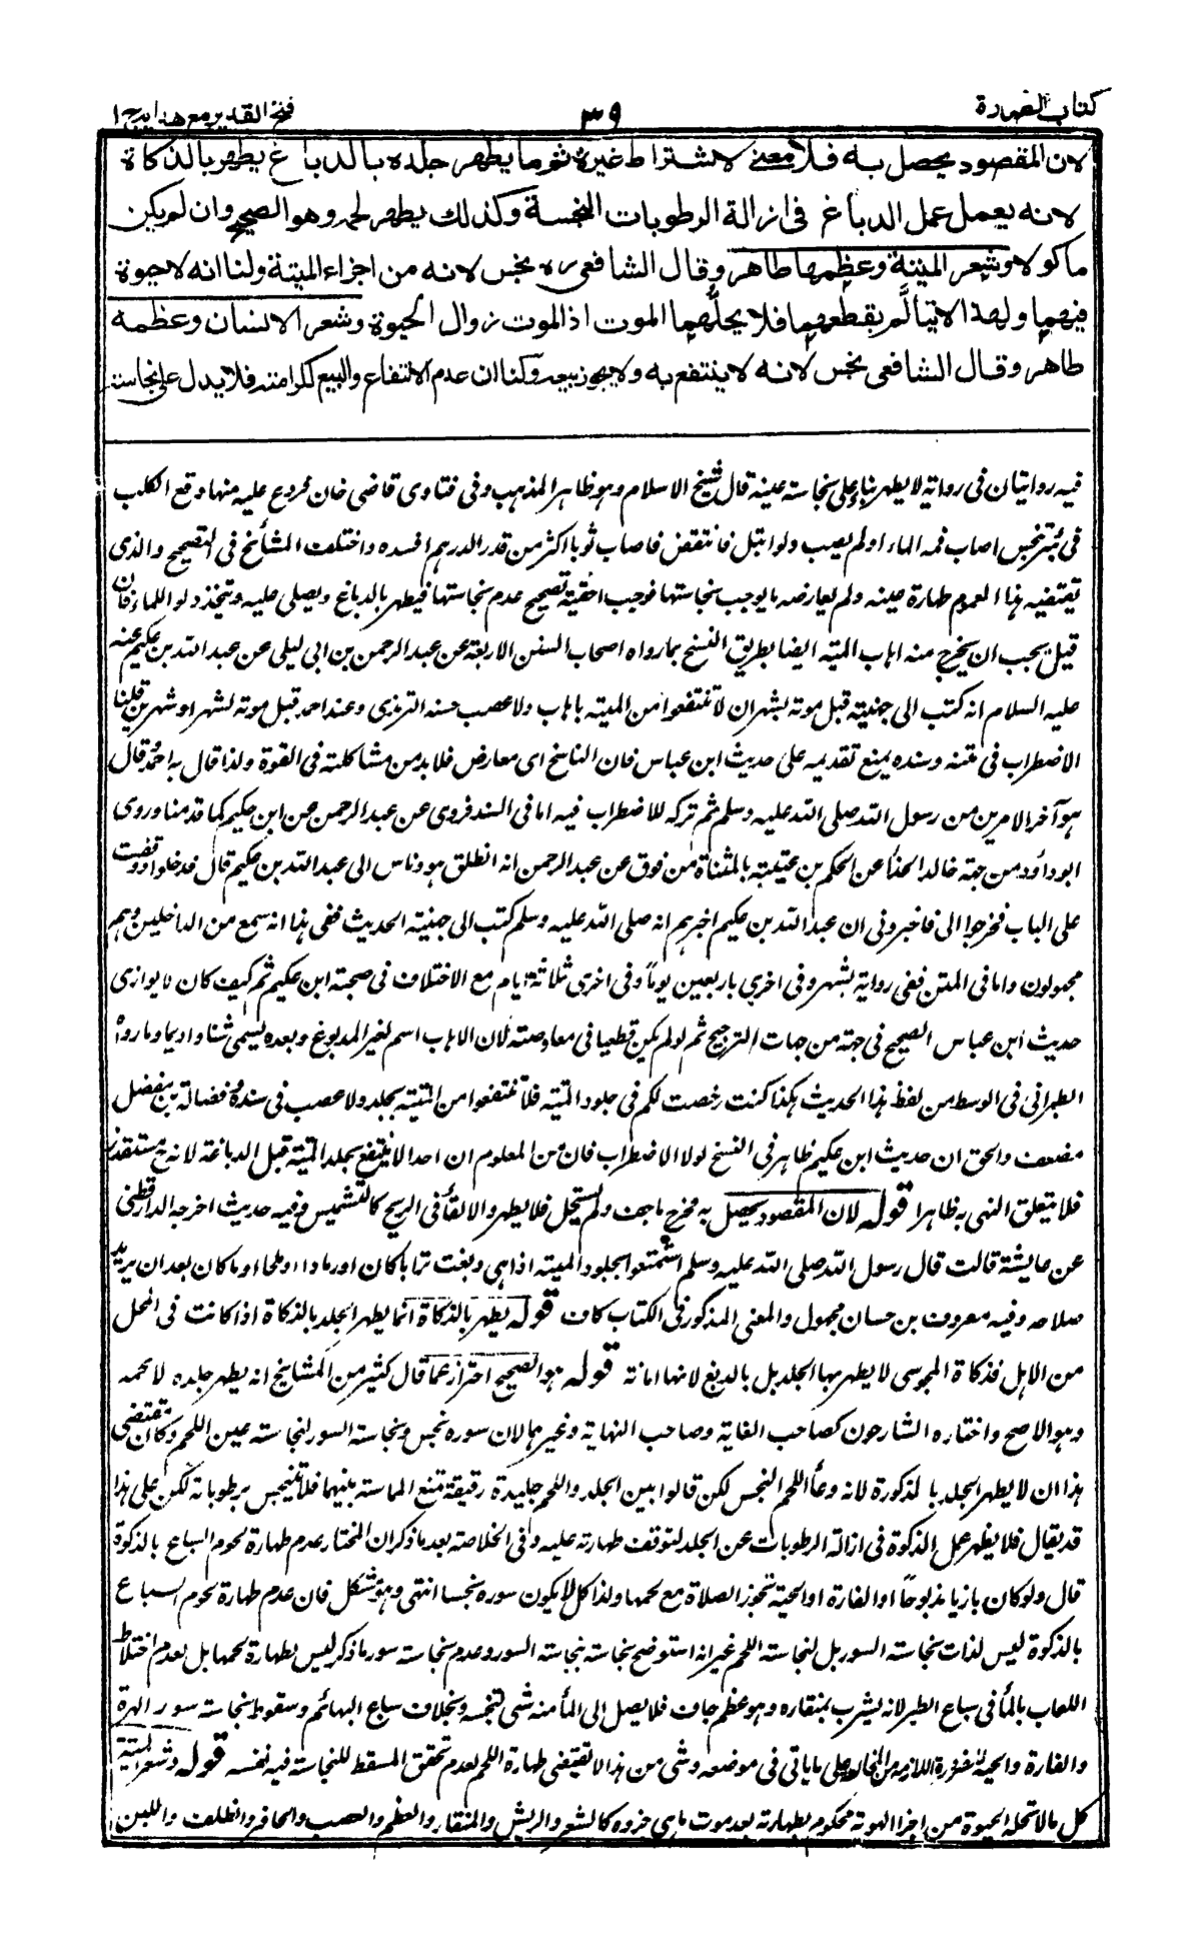 كتاب الطهارة
٣٩
فتح القدير مع هداية ج ١
لان المقصود يحصل به فلا معنى لاشتراط غيره ثم ما يطهر جلده بالدباغ يطهر بالذكاة
لانه يعمل عمل الدباغ فى ازالة الرطوبات النجسة وكذلك يطهر لحمه وهو الصحيح وان لم يكن
ماكولا وشعر الميتة وعظمها طاهر وقال الشافعى ره نجس لانه من اجزاء الميتة ولنا انه لا حيوة
فيهما ولهذا لا يتألم بقطعهما فلا يحلهما الموت اذ الموت زوال الحيوة وشعر الانسان وعظمه
طاهر وقال الشافعى نجس لانه لا ينتفع به ولا يجوز بيعه ولنا ان عدم الانتفاع والبيع لكرامته فلا يدل على نجاسته
فيه روايتان فى رواية لا يطهر بناء على نجاسة عينه قال شيخ الاسلام وهو ظاهر المذهب وفى فتاوى قاضى خان فروع عليه منها وقع الكلب
فى بئر تنجس اصاب فمه الماء او لم يصب ولو ابتل فانتفض فاصاب ثوبا اكثر من قدر الدرهم افسده واختلف المشائخ فى التصحيح والذى
يقتضيه هذا العموم طهارة عينه ولم يعارضه ما يوجب نجاستها فوجب احقية تصحيح عدم نجاستها فيطهر بالدباغ ويصلى عليه ويتخذ دلوا للماء فان
قيل يجب ان يخرج منه اهاب الميتة ايضا بطريق النسخ بما رواه اصحاب السنن الاربعة عن عبد الرحمن بن ابى ليلى عن عبد الله بن عكيم عنه
عليه السلام انه كتب الى جهينة قبل موته بشهر ان لا تنتفعوا من الميتة باهاب ولا عصب حسنه الترمذى وعند احمد قبل موته بشهر او شهرين قلنا
الاضطراب فى متنه وسنده يمنع تقديمه على حديث ابن عباس فان الناسخ اى معارض فلا بد من مشاكلته فى القوة ولذا قال به احمد وقال
هو آخر الامرين من رسول الله صلى الله عليه وسلم ثم تركه للاضطراب فيه اما فى السند فروى عن عبد الرحمن عن ابن عكيم كما قدمنا وروى
ابو داود من جهة خالد الحذاء عن الحكم بن عتيبة بالمثناة من فوق عن عبد الرحمن انه انطلق هو وناس الى عبد الله بن عكيم قال فدخلوا ووقفت
على الباب فخرجوا الى فاخبرونى ان عبد الله بن عكيم اخبرهم انه صلى الله عليه وسلم كتب الى جهينة الحديث ففى هذا انه سمع من الداخلين وهم
مجهولون واما فى المتن ففى رواية بشهر وفى اخرى باربعين يوما وفى اخرى ثلاثة ايام مع الاختلاف فى صحبة ابن عكيم ثم كيف كان لا يوازى
حديث ابن عباس الصحيح فى جهة من جهات الترجيح ثم لو لم يكن قطعيا فى معارضته لان الاهاب اسم لغير المدبوغ وبعده يسمى شنا واديما وما رواه
الطبرانى فى الاوسط من لفظ هذا الحديث هكذا كنت رخصت لكم فى جلود الميتة فلا تنتفعوا من الميتة بجلد ولا عصب فى سنده فضالة بن مفضل
مضعف والحق ان حديث ابن عكيم ظاهر فى النسخ لولا الاضطراب فان من المعلوم ان احدا لا ينتفع بجلد الميتة قبل الدباغة لانه ح مستقذر
فلا يتعلق النهى به ظاهرا قوله لان المقصود يحصل به فخرج ما جف ولم يستحل فلا يطهر والالقاء فى الريح كالتشميس وفيه حديث اخرجه الدارقطنى
عن عايشة قالت قال رسول الله صلى الله عليه وسلم استمتعوا بجلود الميتة اذا هى دبغت ترابا كان او رمادا او ملحا او ما كان بعد ان يريد
صلاحه وفيه معروف بن حسان مجهول والمعنى المذكور فى الكتاب كاف قوله يطهر بالذكاة انما يطهر الجلد بالذكاة اذا كانت فى المحل
من الاهل فذكاة المجوسى لا يطهر بها الجلد بل بالدبغ لانها اماتة قوله هو الصحيح احتراز عما قال كثير من المشايخ انه يطهر جلده لا لحمه
وهو الاصح واختاره الشارحون كصاحب الغاية وصاحب النهاية وغيرهما لان سوره نجس ونجاسة السور لنجاسة عين اللحم وكان مقتضى
هذا ان لا يطهر الجلد بالذكوة لانه وعاء اللحم النجس لكن قالوا بين الجلد واللحم جليدة رقيقة تمنع المماسة بينهما فلا يتنجس برطوباته لكن على هذا
قد يقال فلا يظهر عمل الذكوة فى ازالة الرطوبات عن الجلد لتوقف طهارته عليه وفى الخلاصة بعد ما ذكر ان المختار عدم طهارة لحوم السباع بالذكوة
قال ولو كان بازيا مذبوحا او الفارة او الحية تجوز الصلاة مع لحمها ولذا كل لا يكون سوره نجسا انتهى وهو مشكل فان عدم طهارة لحوم السباع
بالذكوة ليس لذات نجاسة السور بل لنجاسة اللحم غير انه استوضح نجاسته بنجاسة السور وعدم نجاسة سور ما ذكر ليس لطهارة لحمها بل لعدم اختلاط
اللعاب بالماء فى سباع الطير لانه يشرب بمنقاره وهو عظم جاف فلا يصل الى الماء منه شى تنجسه بخلاف سباع البهائم وسقوط نجاسة سور الهرة
والفارة والحية للضرورة اللازمة من المخالطة على ما ياتى فى موضعه وشى من هذا لا يقتضى طهارة اللحم لعدم تحقق المسقط للنجاسة فيه نفسه قوله وشعر الميتة
كل ما لا تحله الحيوة من اجزاء الهوية محكوم بطهارته بعد موت ما هى جزوه كالشعر والريش والمنقار والعظم والعصب والحافر والظلف واللبن